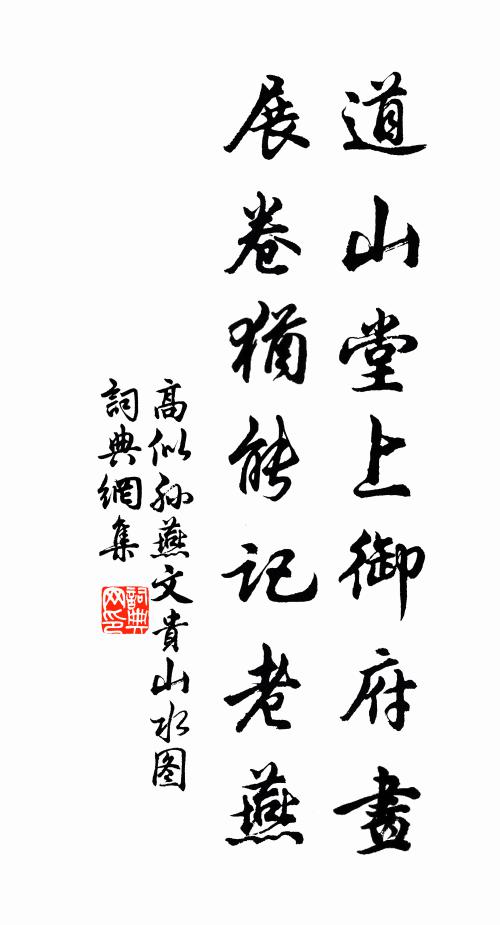 道山堂上御府畫
展卷猶能記老燕
高似孫燕文貴山水图
詞典網集
詞典
网印